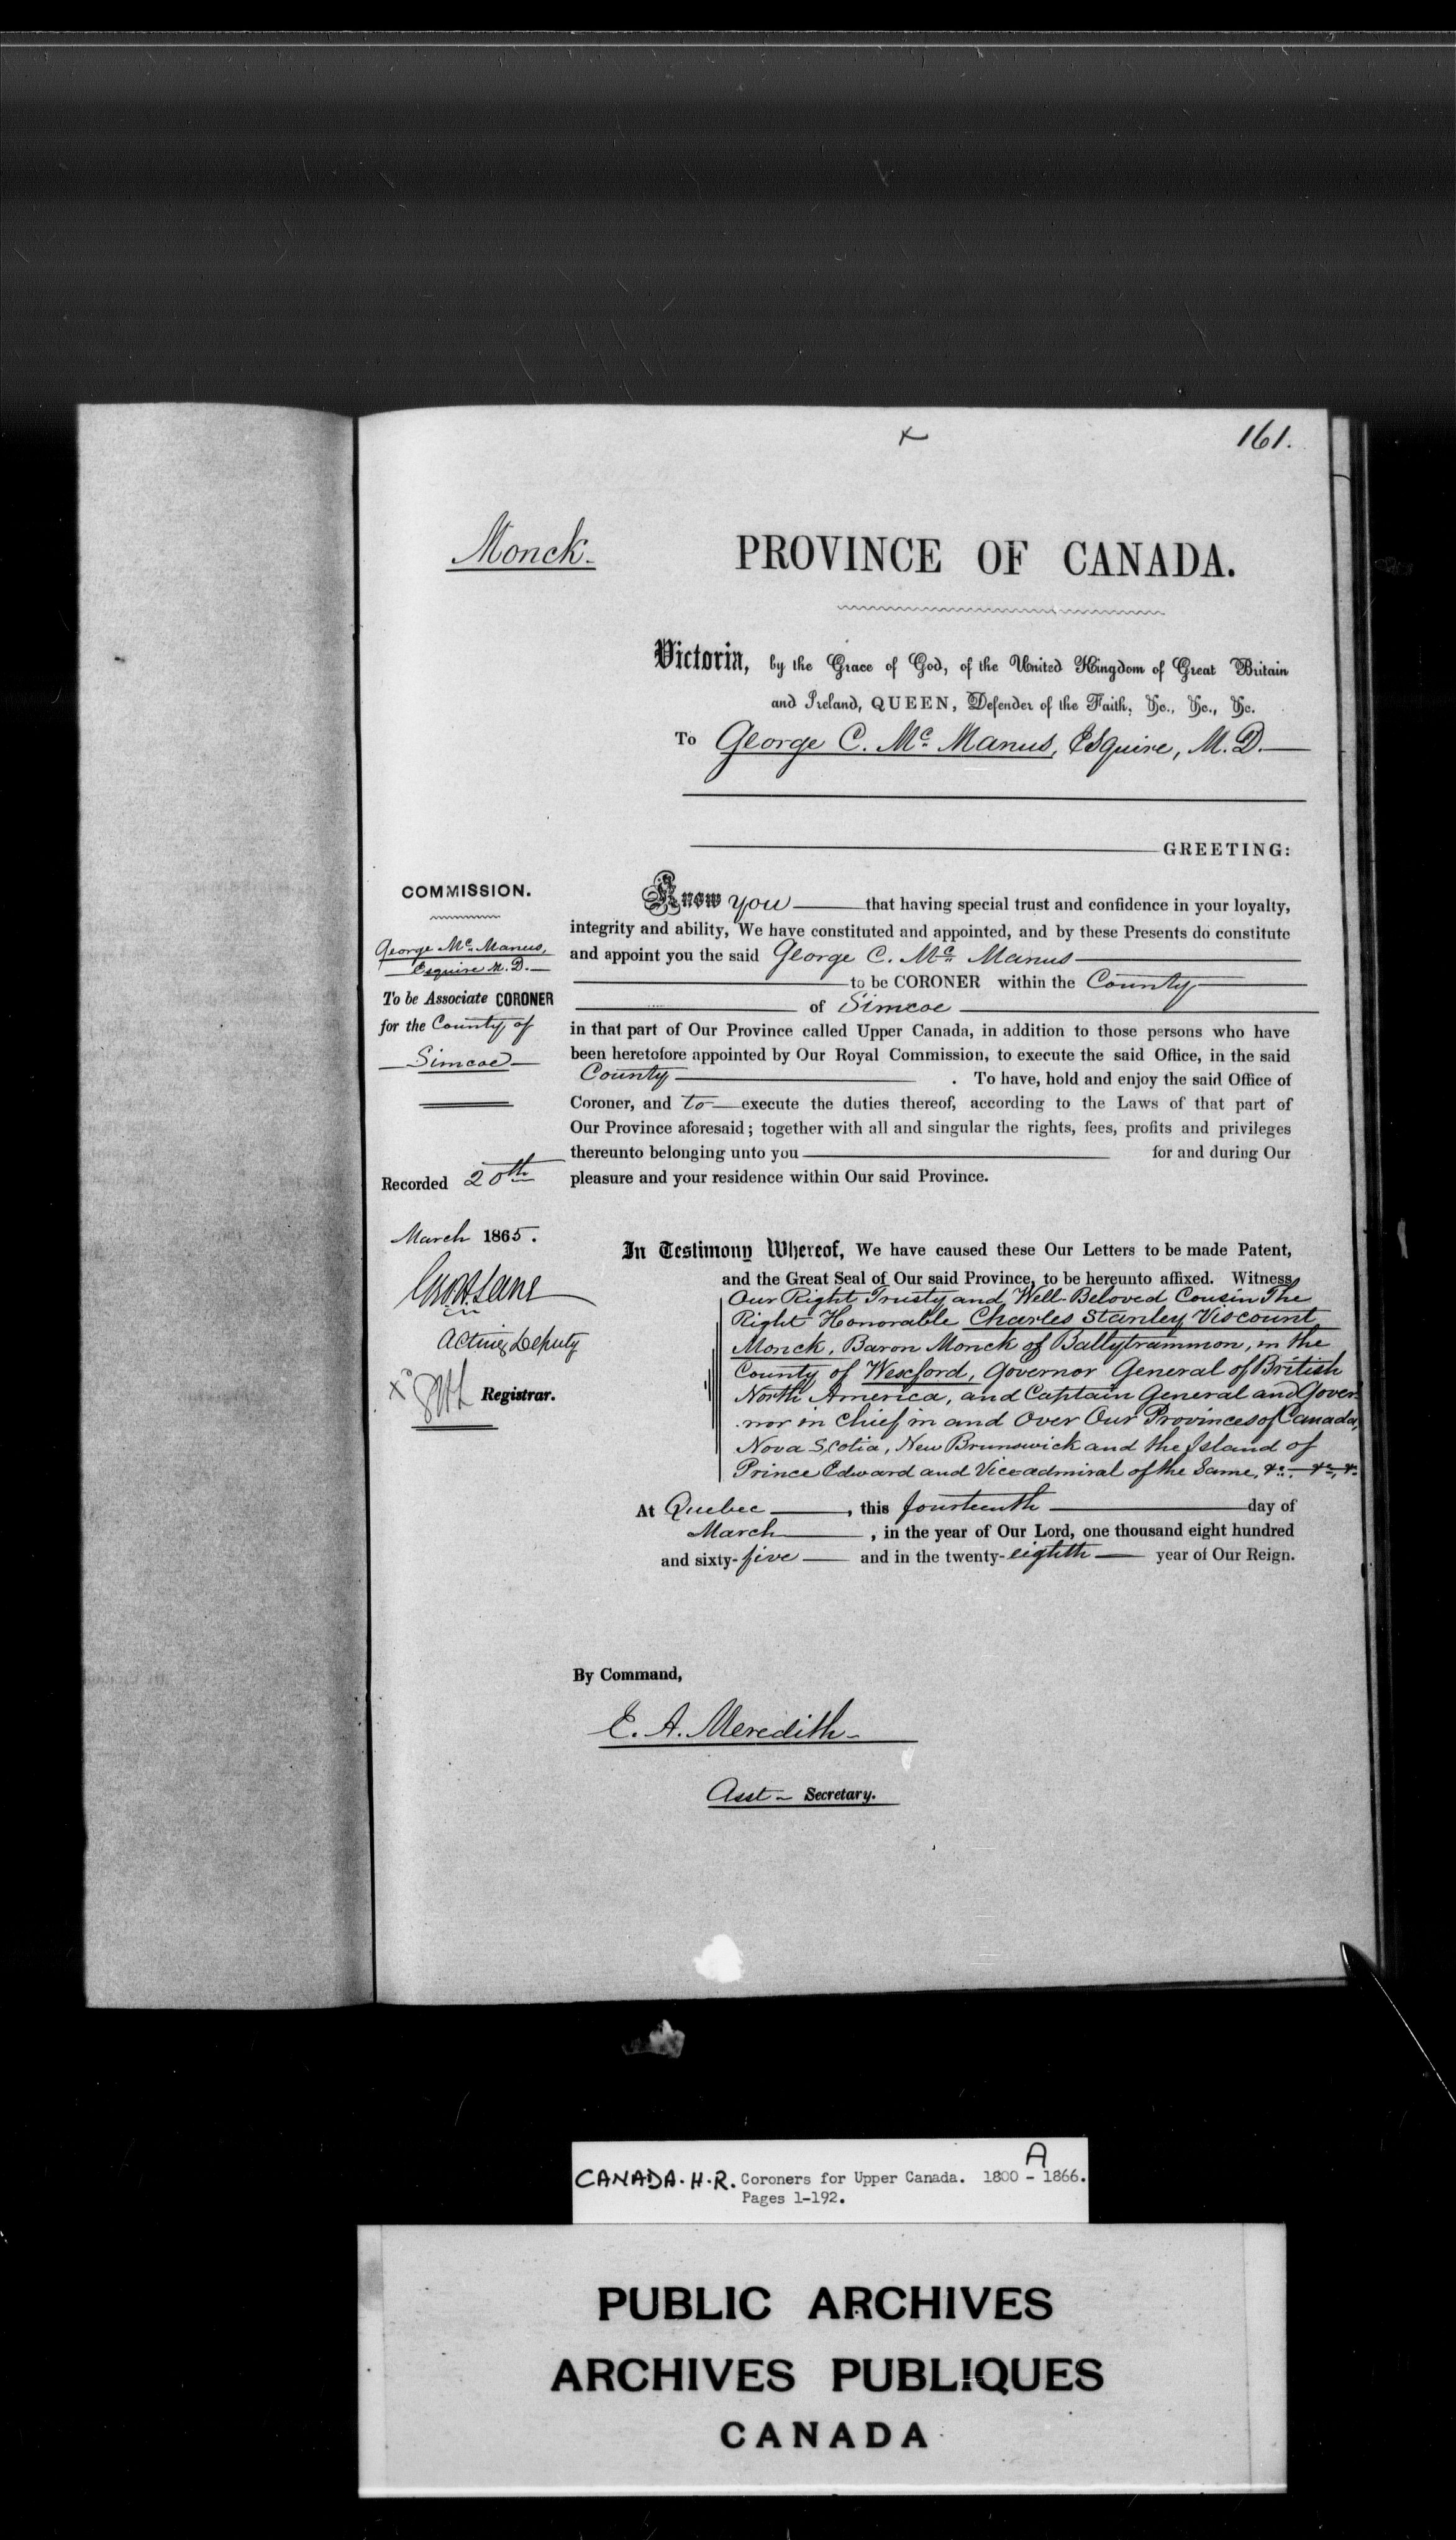 161.
Monck.
PROVINCE OF CANADA.
Victoria, by the Grace of God, of the United Kingdom of Great Britain
and Ireland, QUEEN, Defender of the Faith, &c., &c., &c.
To George C. Mc Manus, Esquire, M.D.
GREETING:
COMMISSION.
George Mc Manus,
Esquire M.D.
To be Associate CORONER
for the County of
Simcoe
Recorded 20th
March 1865.
Acting Deputy
Registrar.
Know you that having special trust and confidence in your loyalty,
integrity and ability, We have constituted and appointed, and by these Presents do constitute
and appoint you the said George C. Mc Manus
to be CORONER within the County
of Simcoe
in that part of Our Province called Upper Canada, in addition to those persons who have
been heretofore appointed by Our Royal Commission, to execute the said Office, in the said
County . To have, hold and enjoy the said Office of
Coroner, and to execute the duties thereof, according to the Laws of that part of
Our Province aforesaid; together with all and singular the rights, fees, profits and privileges
thereunto belonging unto you for and during Our
pleasure and your residence within Our said Province.
In Testimony Whereof, We have caused these Our Letters to be made Patent,
and the Great Seal of Our said Province, to be hereunto affixed. Witness,
Our Right Trusty and Well-Beloved Cousin The
Right Honorable Charles Stanley Viscount
Monck, Baron Monck of Ballytrammon, in the
County of Wexford, Governor General of British
North America, and Captain General and Gover
nor in Chief in and Over Our Provinces of Canada,
Nova Scotia, New Brunswick and the Island of
Prince Edward and Vice admiral of the Same, &c. &c. &c.
At Quebec, this fourteenth day of
March, in the year of Our Lord, one thousand eight hundred
and sixty-five and in the twenty-eighth year of Our Reign.
By Command,
E. A. Meredith
Asst Secretary.
A
CANADA. H.R. Coroners for Upper Canada. 1800 - 1866.
Pages 1-192.
PUBLIC ARCHIVES
ARCHIVES PUBLIQUES
CANADA